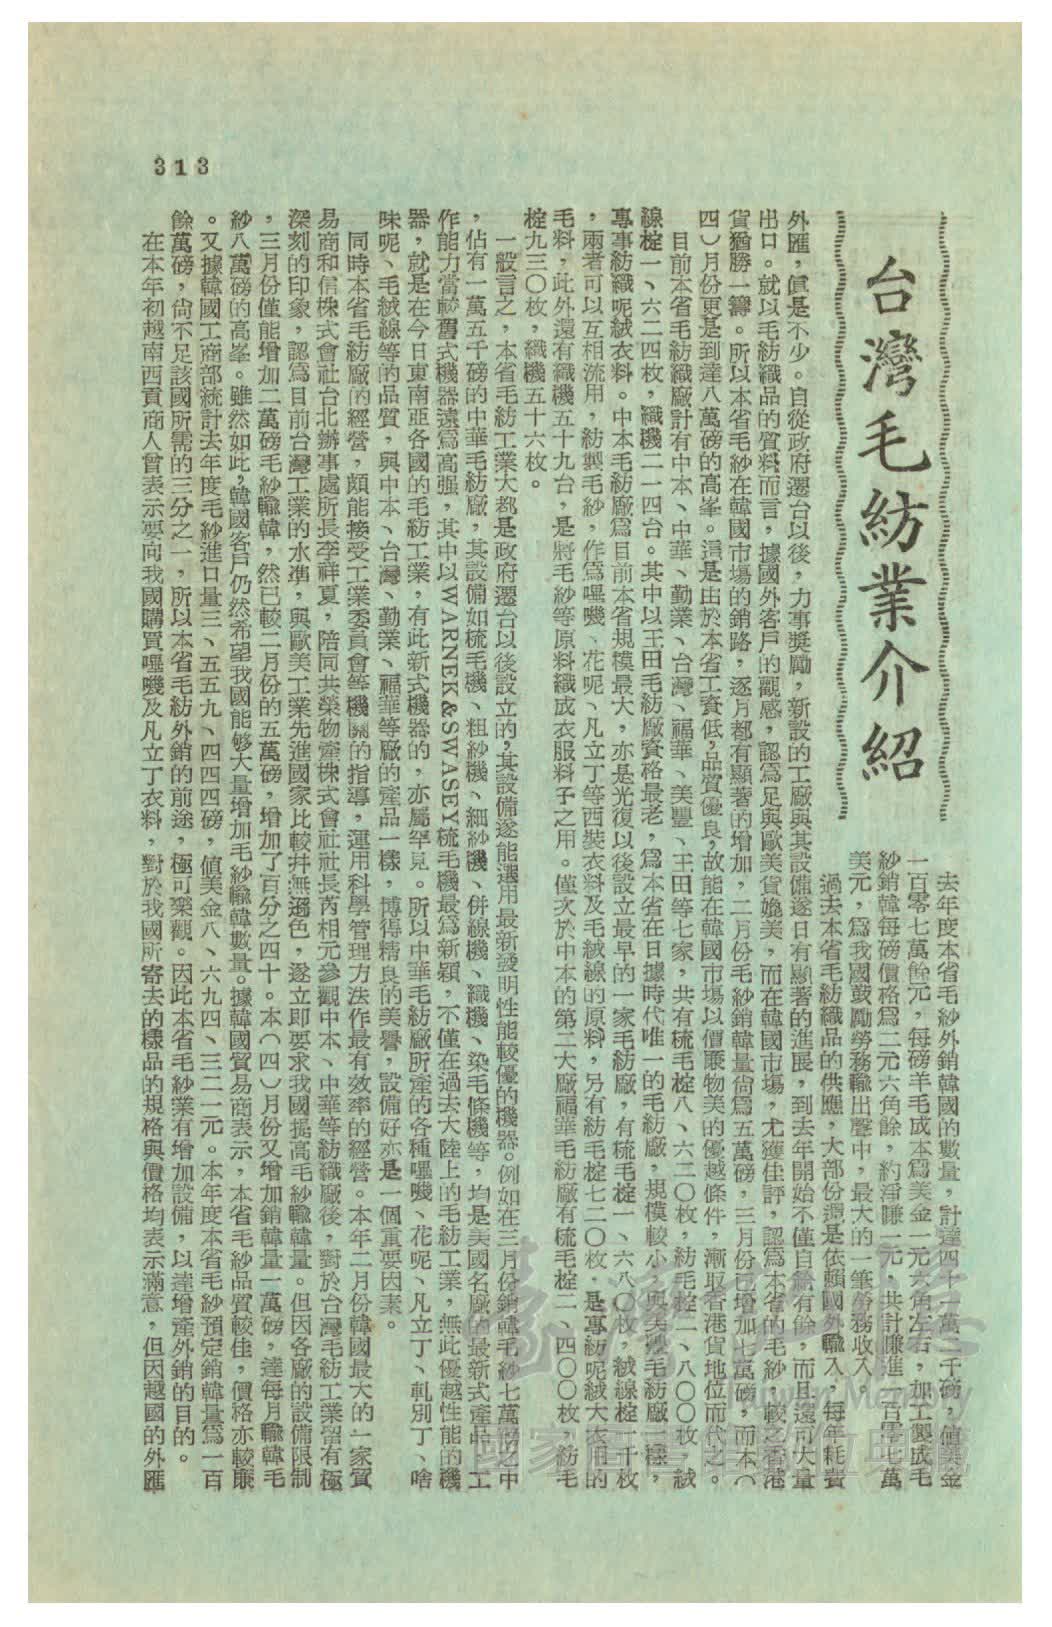 313
台灣毛紡業介紹
去年度本省毛紗外銷韓國的數量，計達四十一萬一千磅，值美金
一百零七萬餘元，每磅羊毛成本爲美金一元六角左右，加工製成毛
紗銷韓每磅價格爲二元六角餘，約淨賺一元，共計賺進一百零七萬
美元，爲我國鼓勵勞務輸出聲中，最大的一筆勞務收入。
過去本省毛紡織品的供應，大部份還是依賴國外輸入，每年耗費
外匯，眞是不少。自從政府遷台以後，力事獎勵，新設的工廠與其設備遂日有顯著的進展，到去年開始不僅自給有餘，而且還可大量
出口。就以毛紡織品的質料而言，據國外客戶的觀感，認爲足與歐美貨媲美，而在韓國市場，尤獲佳評，認爲本省的毛紗，較之香港
貨猶勝一籌。所以本省毛紗在韓國市場的銷路，逐月都有顯著的增加，二月份毛紗銷韓量尙爲五萬磅，三月份已增加七萬磅，而本（
四）月份更是到達八萬磅的高峯。這是由於本省工資低，品質優良，故能在韓國市場以價廉物美的優越條件，漸取香港貨地位而代之。
目前本省毛紡織廠計有中本、中華、勤業、台灣、福華、美豐、王田等七家，共有梳毛椗八、六二〇枚，紡毛椗二、八〇〇枚、絨
線椗一、六二四枚，織機二一四台。其中以王田毛紡廠資格最老，爲本省在日據時代唯一的毛紡廠，規模較小，與美豐毛紡廠一樣，
專事紡織呢絨衣料。中本毛紡廠爲目前本省規模最大，亦是光復以後設立最早的一家毛紡廠，有梳毛椗一、六八〇枚，絨線椗一千枚
，兩者可以互相流用，紡製毛紗，作爲嗶嘰、花呢、凡立丁等西裝衣料及毛絨線的原料，另有紡毛椗七二〇枚，是專紡呢絨大衣用的
毛料，此外還有織機五十九台，是將毛紗等原料織成衣服料子之用。僅次於中本的第二大廠福華毛紡廠有梳毛椗二、四〇〇枚，紡毛
椗九三〇枚，織機五十六枚。
一般言之，本省毛紡工業大都是政府遷台以後設立的，其設備遂能選用最新發明性能較優的機器。例如在三月份銷韓毛紗七萬磅之中
，佔有一萬五千磅的中華毛紡廠，其設備如梳毛機、粗紗機、細紗機、併線機、織機、染毛條機等，均是美國名廠的最新式產品，工
作能力當較舊式機器遠爲高强，其中以WARNEK&SWASEY梳毛機最爲新穎，不僅在過去大陸上的毛紡工業，無此優越性能的機
器，就是在今日東南亞各國的毛紡工業，有此新式機器的，亦屬罕見。所以中華毛紡廠所產的各種嗶嘰、花呢、凡立丁、軋別丁、啥
味呢、毛絨線等的品質，與中本、台灣、勤業、福華等廠的產品一樣，博得精良的美譽，設備好亦是一個重要因素。
同時本省毛紡廠的經營，頗能接受工業委員會等機關的指導，運用科學管理方法作最有效率的經營。本年二月份韓國最大的一家貿
易商和信株式會社台北辦事處所長李祥夏，陪同共榮物產株式會社社長芮相元參觀中本、中華等紡織廠後，對於台灣毛紡工業留有極
深刻的印象，認爲目前台灣工業的水準，與歐美工業先進國家比較幷無遜色，遂立即要求我國提高毛紗輸韓量。但因各廠的設備限制
，三月份僅能增加二萬磅毛紗輸韓，然已較二月份的五萬磅，增加了百分之四十。本（四）月份又增加銷韓量一萬磅，達每月輸韓毛
紗八萬磅的高峯。雖然如此，韓國客戶仍然希望我國能够大量增加毛紗輸韓數量。據韓國貿易商表示，本省毛紗品質較佳，價格亦較廉
。又據韓國工商部統計去年度毛紗進口量三、五五九、四四四磅，値美金八、六九四、三二一元。本年度本省毛紗預定銷韓量爲一百
餘萬磅，尙不足該國所需的三分之一，所以本省毛紡外銷的前途，極可樂觀。因此本省毛紗業有增加設備，以達增產外銷的目的。
在本年初越南西貢商人曾表示要向我國購買嗶嘰及凡立丁衣料，對於我國所寄去的樣品的規格與價格均表示滿意，但因越國的外匯
臺灣記憶
Taiwan Memory
國家圖書館數位典藏